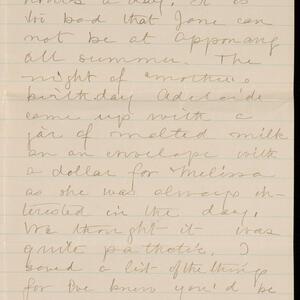 hours a day. It is
too bad that Jane can
not be at Apponaug
all summer. The
night of mother's
birthday Adelaide
came up with a
jar of malted milk
an an envelope with
a dollar for Melissa
as she was always in-
terested in the day.
We thought it was
quite pathetic. I
saved a list of the things
for I've knew you'd be